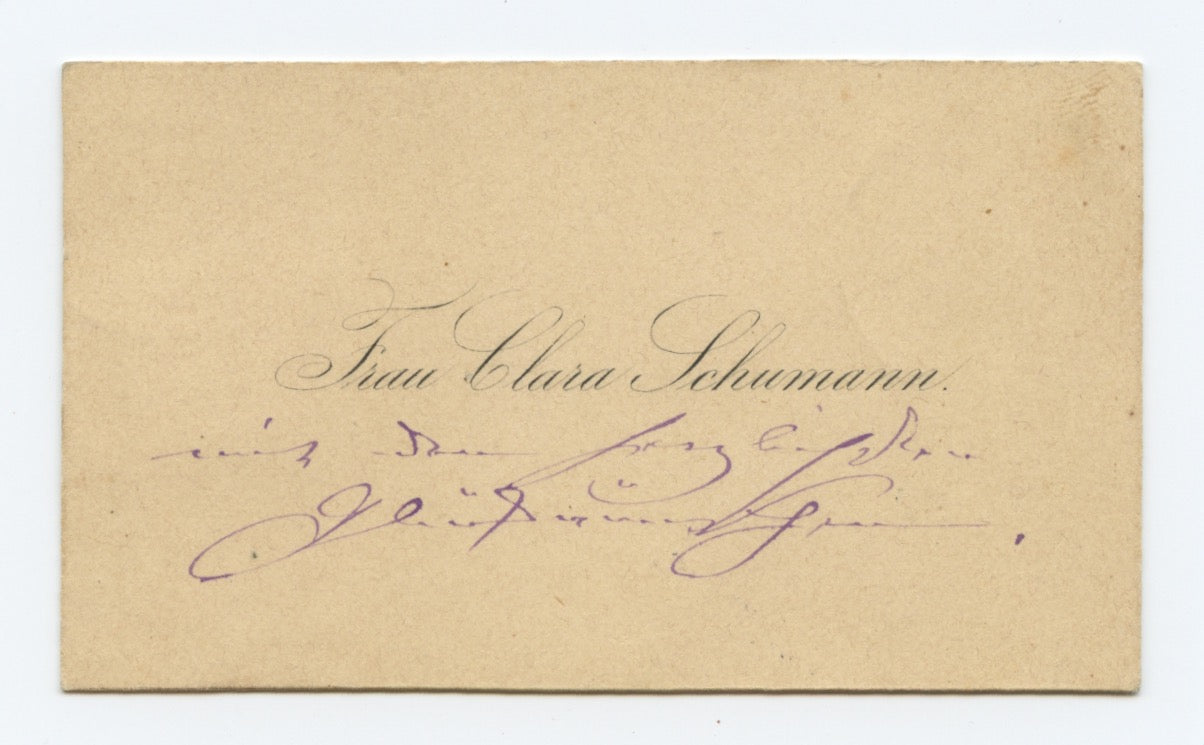 Frau Clara Schumann.
mit den herzlichsten
Glückwünschen.